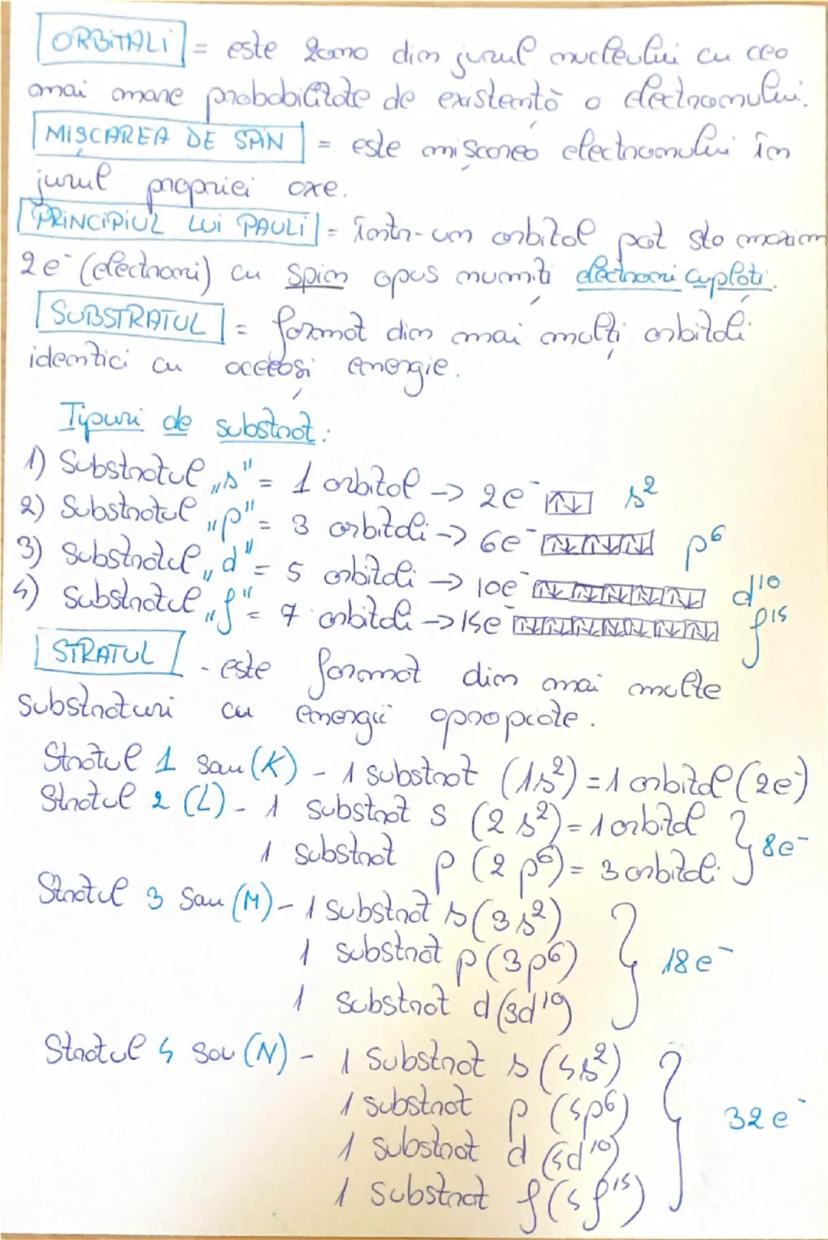 ORBITALI = este zona din jurul nucleului cu cea
mai mare probabilitate de existență a electronului.
MIȘCAREA DE SPIN = este mișcarea electronului în
jurul propriei axe.
PRINCIPIUL LUI PAULI = într-un orbital pot sta maxim
2e⁻ (electroni) cu spin opus numiți electroni cuplați.
SUBSTRATUL = format din mai mulți orbitali
identici cu aceeași energie.
Tipuri de substrat:
1) Substratul „s" = 1 orbital -> 2e⁻ ↑↓ s²
2) Substratul „p" = 3 orbitali -> 6e⁻ ↑↓↑↓↑↓ p⁶
3) Substratul „d" = 5 orbitali -> 10e⁻ ↑↓↑↓↑↓↑↓↑↓ d¹⁰
4) Substratul „f" = 7 orbitali -> 14e⁻ ↑↓↑↓↑↓↑↓↑↓↑↓↑↓ f¹⁴
STRATUL - este format din mai multe
substraturi cu energii apropiate.
Stratul 1 sau (K) - 1 substrat (1s²) = 1 orbital (2e⁻)
Stratul 2 (L) - 1 substrat s (2s²) = 1 orbital
1 substrat p (2p⁶) = 3 orbitali } 8e⁻
Stratul 3 sau (M) - 1 substrat s (3s²)
1 substrat p (3p⁶) } 18e⁻
1 substrat d (3d¹⁰)
Stratul 4 sau (N) - 1 substrat s (4s²)
1 substrat p (4p⁶) } 32e⁻
1 substrat d (4d¹⁰)
1 substrat f (4f¹⁴)